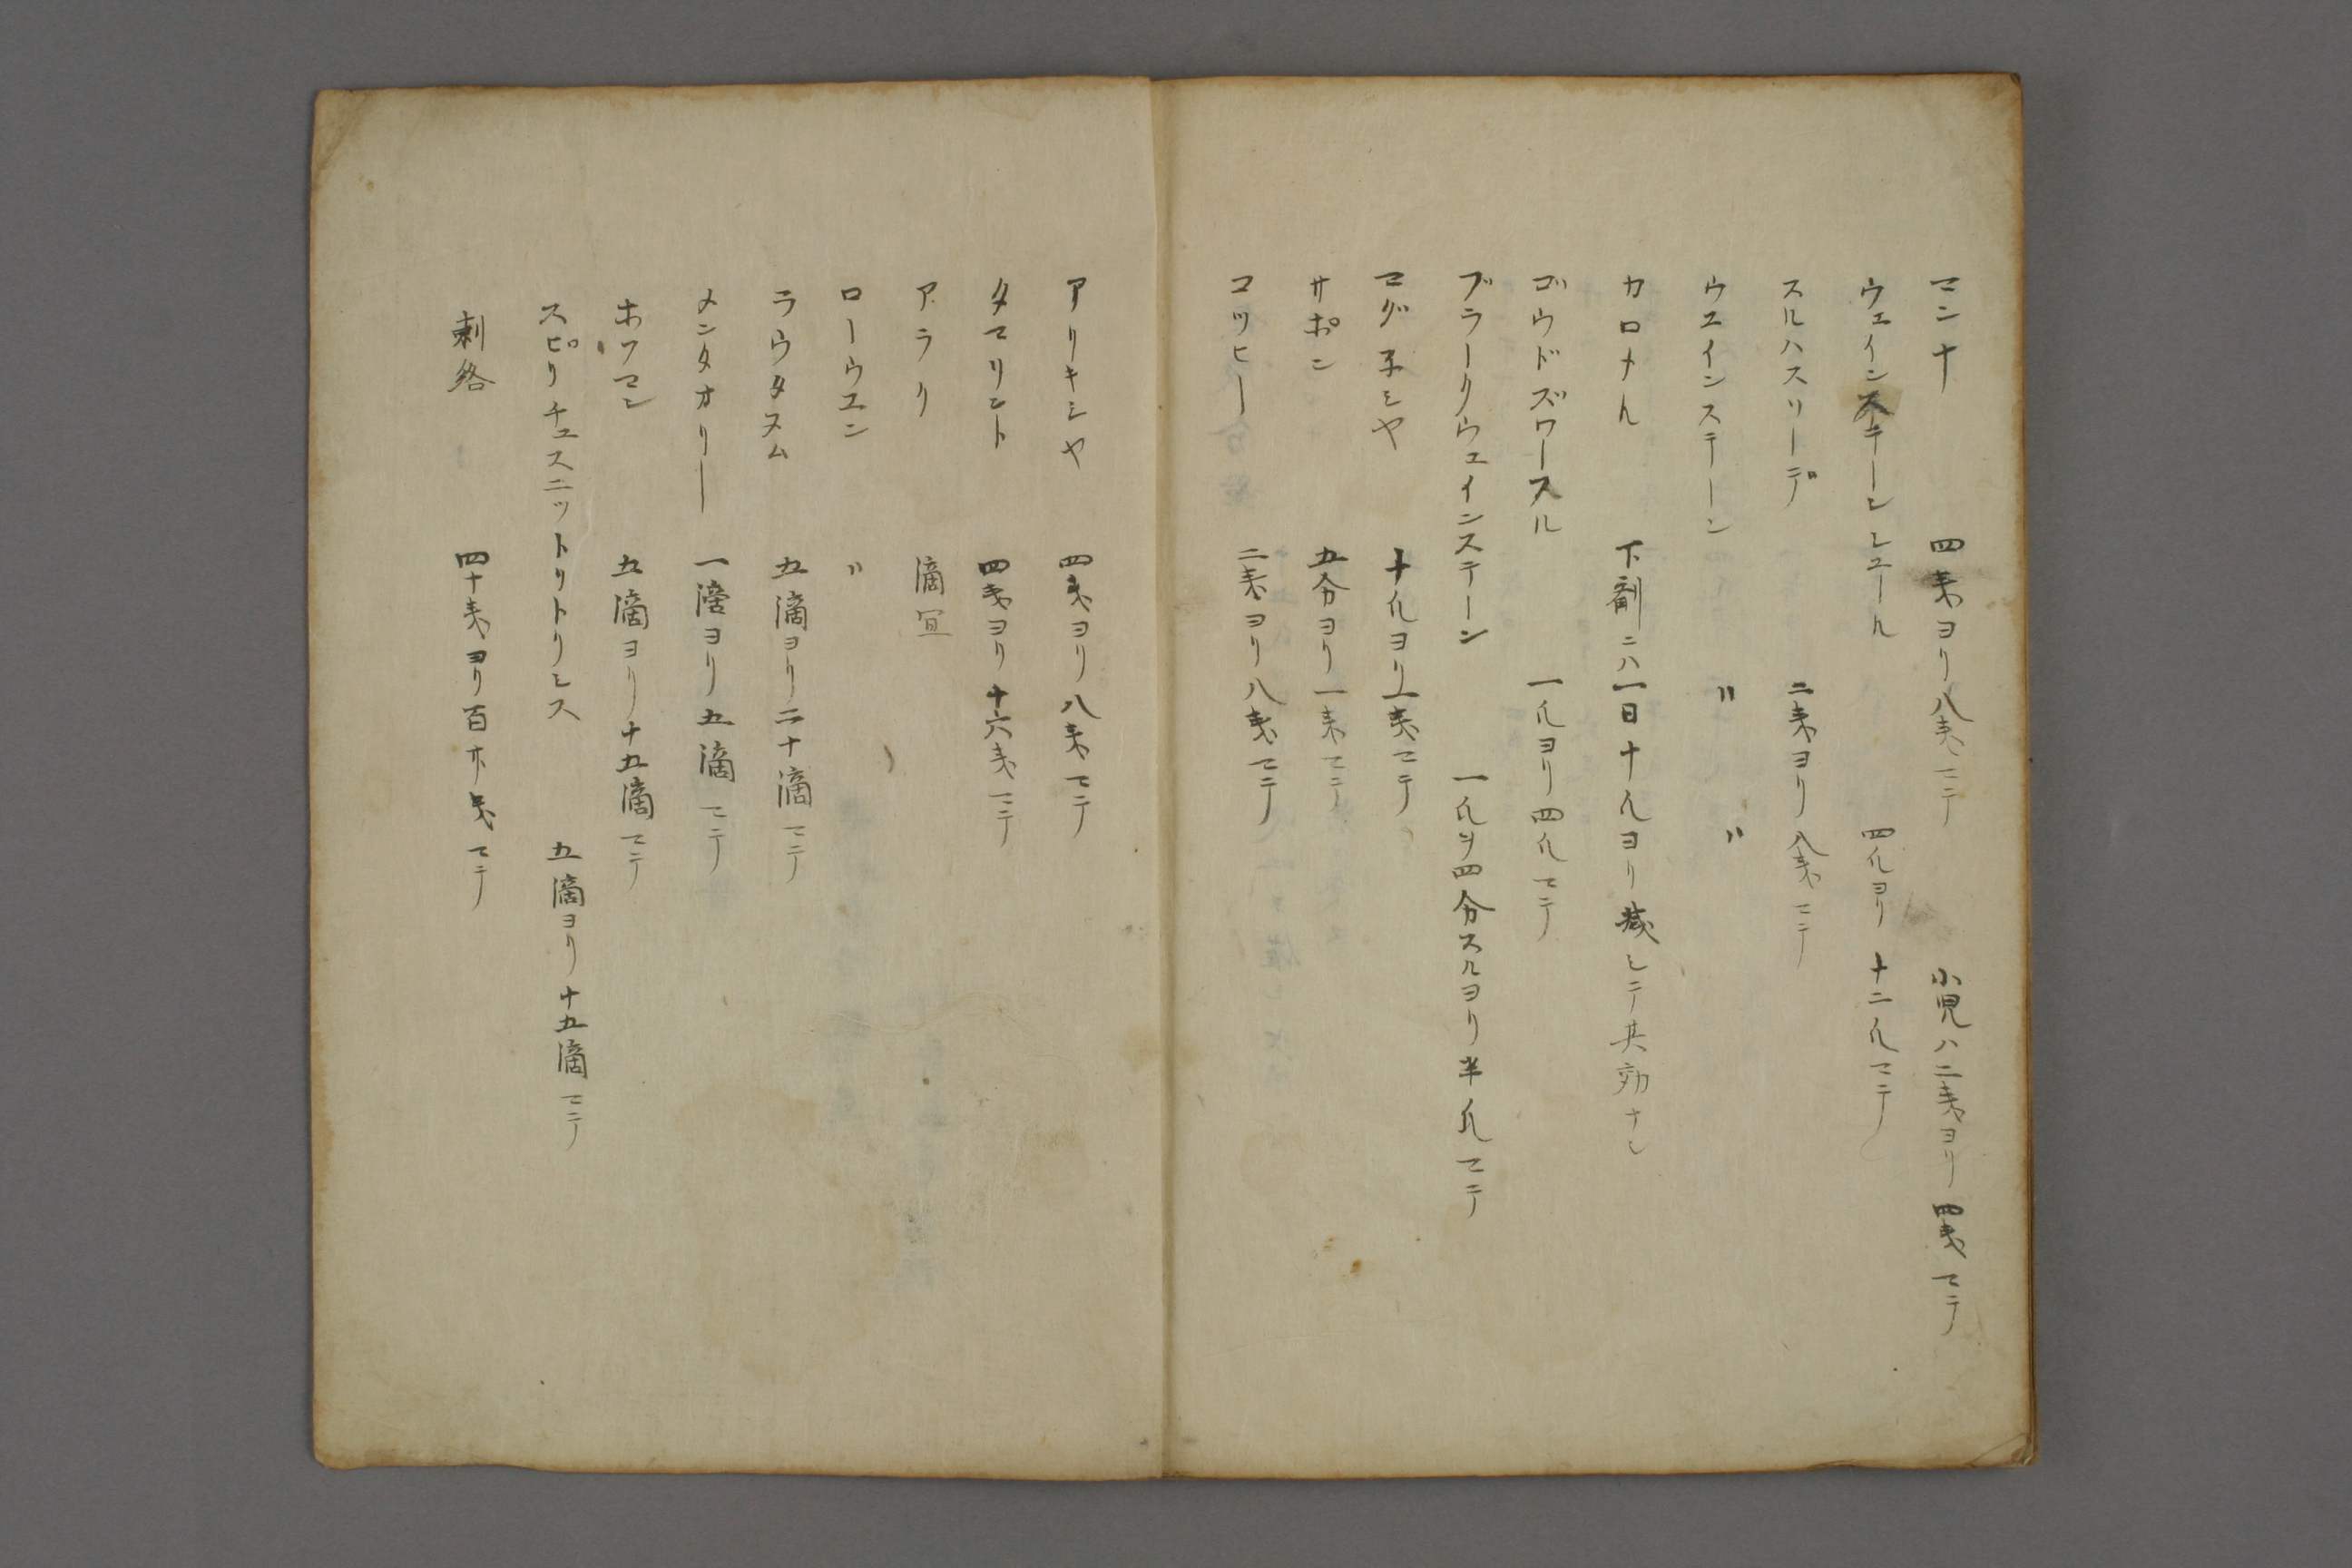 マンナ 四戔ヨリ八戔マテ 小児ハ二戔ヨリ四戔マテ
ウェインステーンシュール 四瓜ヨリ十二瓜マテ
スルハスソーデ 二戔ヨリ八戔マテ
ウエインステーン 〃 〃
カロメル 下剤ニハ一日十瓜ヨリ減シテ其効ナシ
ゴウドズワースル 一瓜ヨリ四瓜マテ
ブラークウェインステーン 一瓜ヲ四分スルヨリ半瓜マテ
マグ子シヤ 十瓜ヨリ一戔マテ
サポン 五分ヨリ一戔マテ
コツヒー 二戔ヨリ八戔マテ
アリキシヤ 四戔ヨリ八戔マテ
タマリント 四戔ヨリ十六戔マテ
アラク 滴宜
ローウエン 〃
ラウタヌム 五滴ヨリ二十滴マテ
メンタオリー 一滴ヨリ五滴マテ
ホフマン 五滴ヨリ十五滴マテ
スピリチュスニットリトリシス 五滴ヨリ十五滴マテ
刺絡 四十戔ヨリ百廾戔マテ